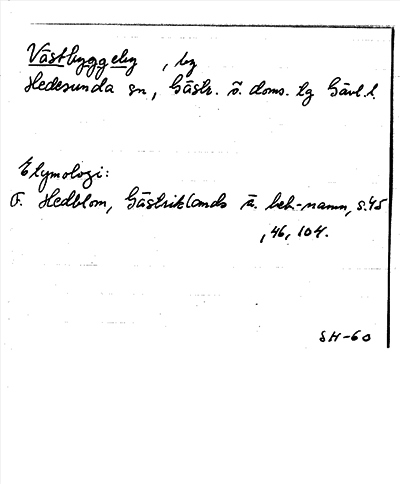 Västbyggeby, by
Hedesunda sn, Gästr. ö. doms. tg Gävl. l.
Etymologi:
F. Hedblom, Gästriklands ä. beb-namn, s. 45
, 46, 104.
SH-60